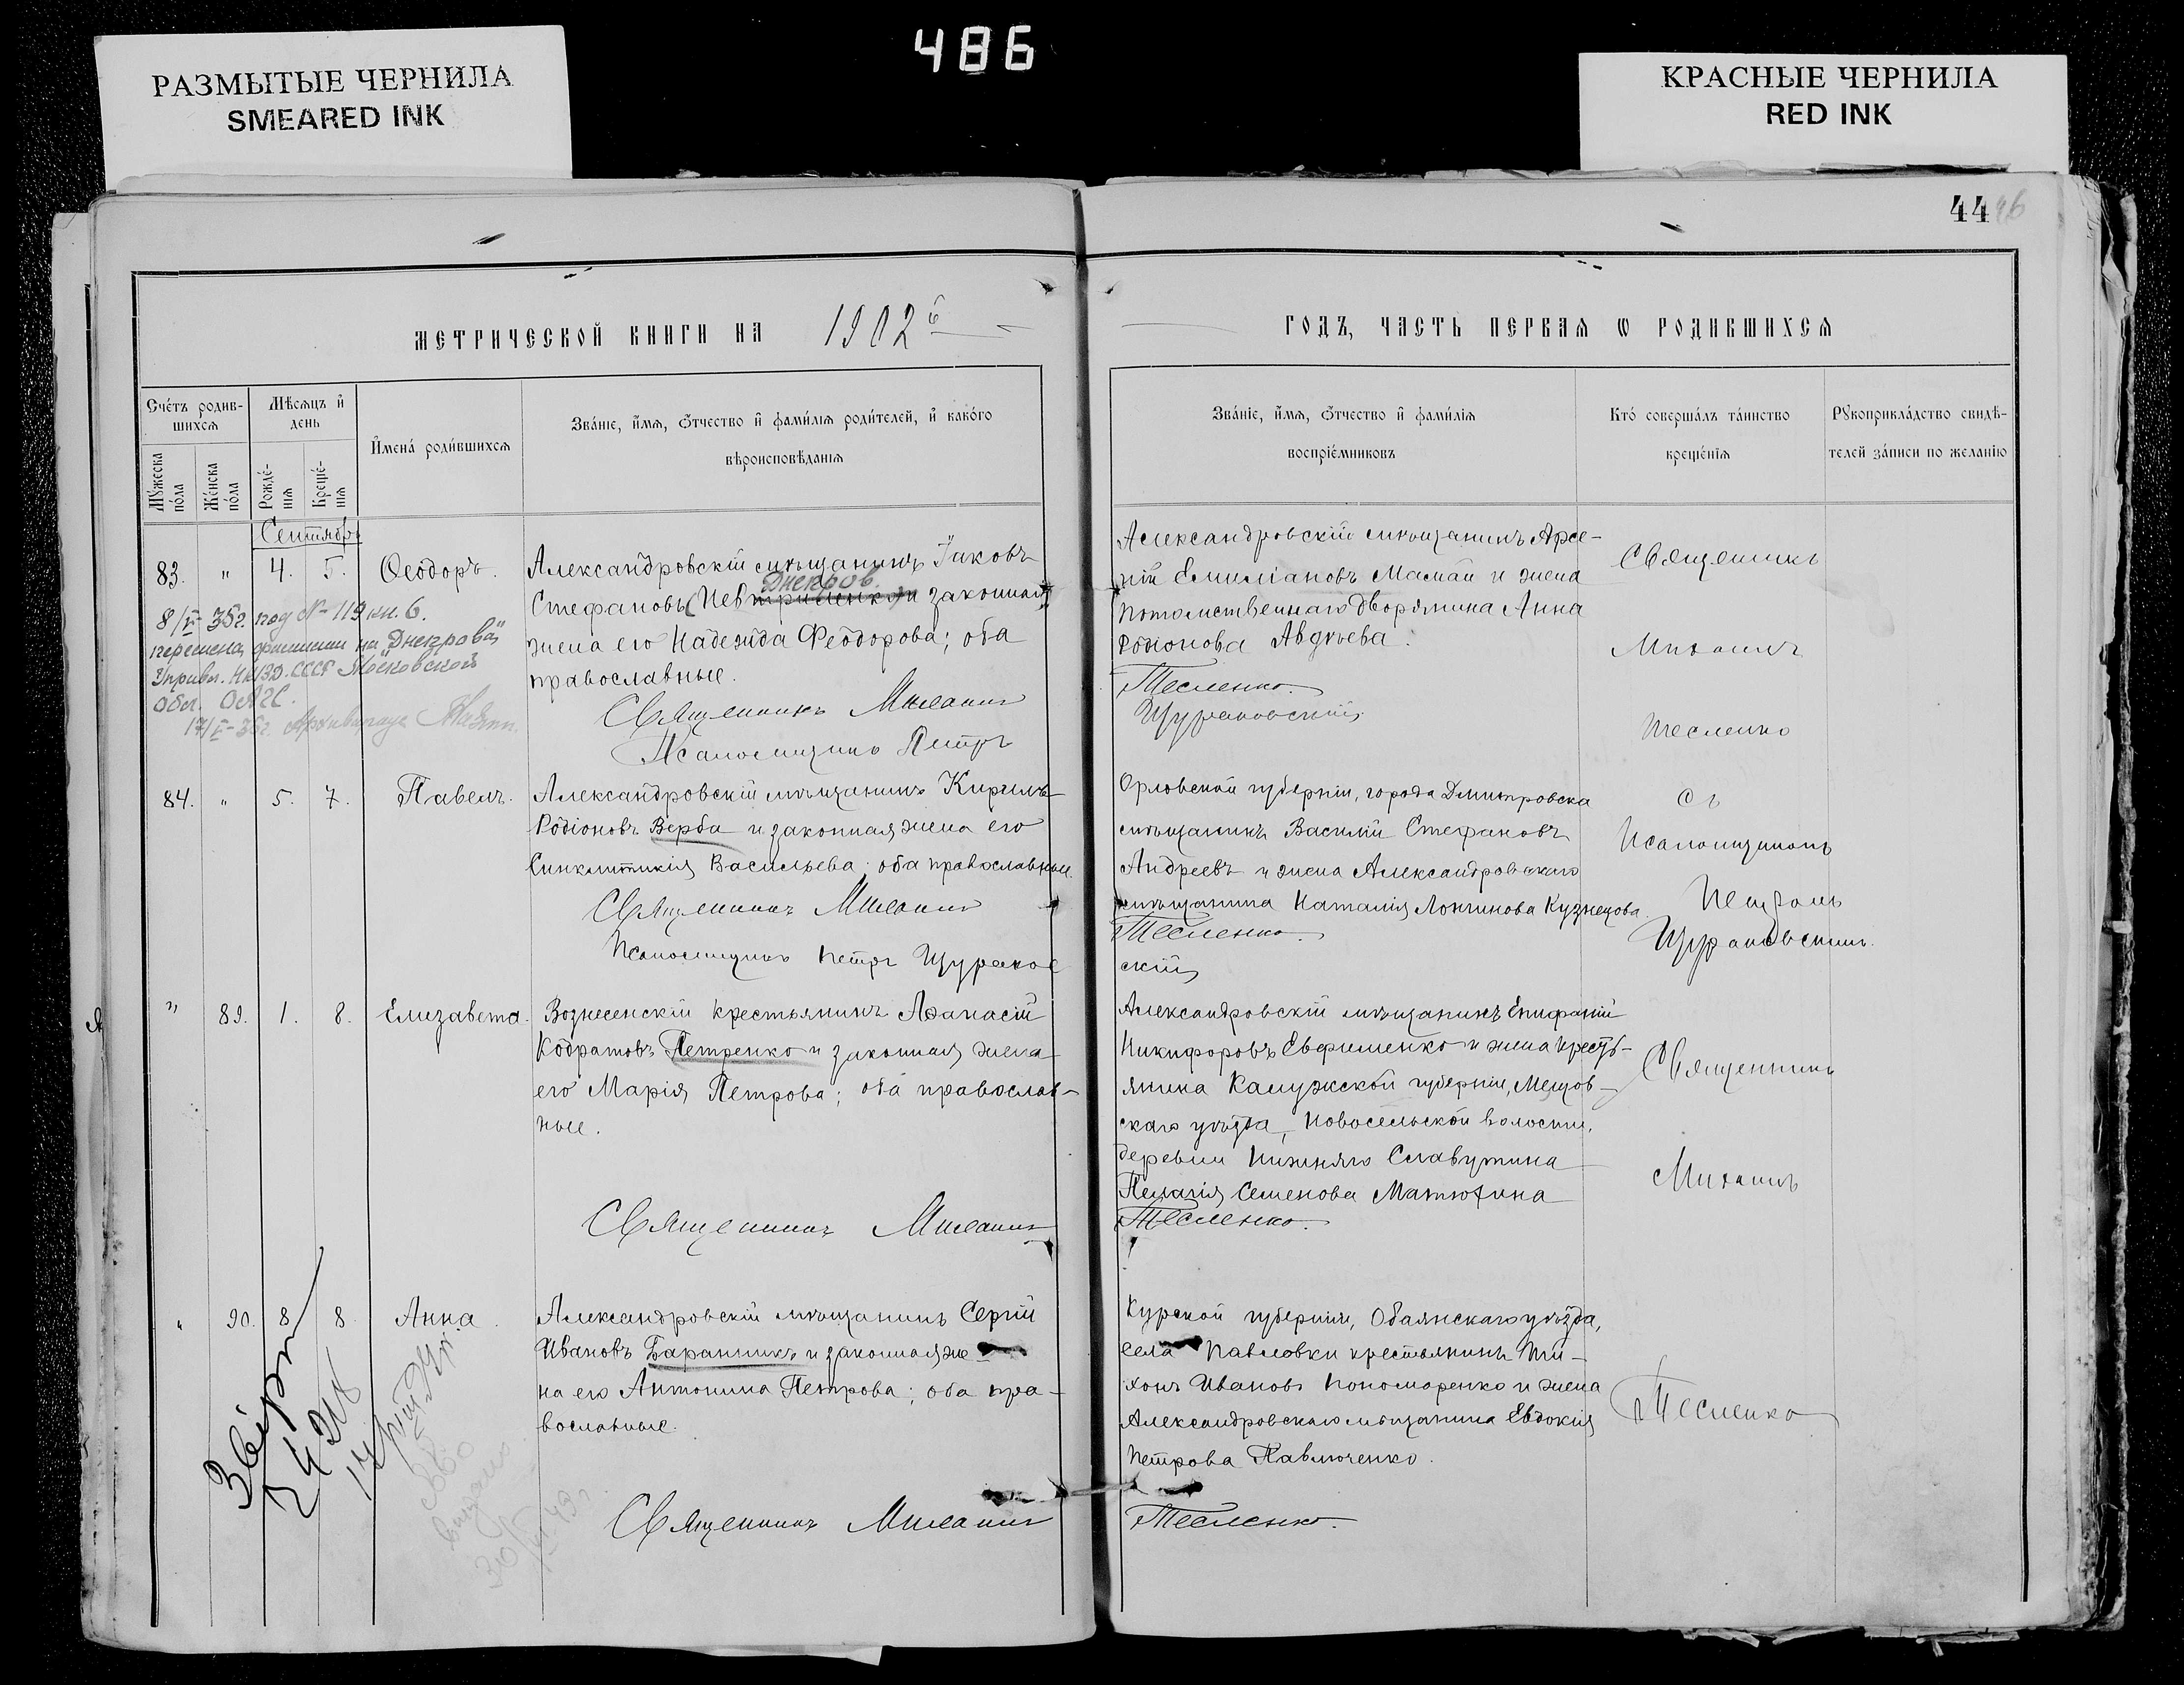 486
РАЗМЫТЫЕ ЧЕРНИЛА
SMEARED INK
КРАСНЫЕ ЧЕРНИЛА
RED INK
44 46
МЕТРИЧЕСКОЙ КНИГИ НА 1902й
ГОДЪ, ЧАСТЬ ПЕРВАЯ Ѡ РОДИВШИХСЯ
Счетъ родив-
шихся
Мѣсяцъ и
день
Мужеска
пола
Женска
пола
Рожде-
нія
Креще-
нія
Имена родившихся
Званіе, имя, отчество и фамилія родителей, и какого
вѣроисповѣданія
Званіе, имя, отчество и фамилія
воспріемниковъ
Кто совершалъ таинство
крещенія
Рукоприкладство свидѣ-
телей записи по желанію
Сентябрь
83. " 4. 5. Ѳеодоръ.
Александровскій мѣщанинъ Іаковъ
Днепров.
Стефановъ и законная
жена его Надежда Ѳеодорова; оба
православные.
Священникъ Михаилъ
Псаломщикъ Петръ
8/VI-35г. под №-119 кн. 6.
перемена фамилии на "Днепрова"
Управл. НКВД. СССР Московской
Обл. ОАГС.
Александровскій мѣщанинъ Арсе-
ній Емиліановъ Мамай и жена
потомственнаго дворянина Анна
Родіонова Авдѣева.
Тесленко.
Щурановскій
Священникъ
Михаилъ
Тесленко
84. " 5. 7. Павелъ.
Александровскій мѣщанинъ Кирилъ
Родіоновъ Верба и законная жена его
Синклитикія Васильева; оба православные.
Священникъ Михаилъ
Псаломщикъ Петръ Щуранов
Орловской губерніи, города Дмитровска
мѣщанинъ Василій Стефановъ
Андреевъ и жена Александровскаго
мѣщанина Наталія Лонгинова Кузнецова.
Тесленко.
скій
Съ
Псаломщикомъ
Петромъ
Щурановскимъ.
" 89. 1. 8. Елизавета.
Вознесенскій крестьянинъ Аѳанасій
Кодратовъ Петренко и законная жена
его Марія Петрова; оба православ-
ные.
Священникъ Михаилъ
Александровскій мѣщанинъ Епифаній
Никифоровъ Евфименко и жена кресть-
янина Калужской губерніи, Мещов-
скаго уѣзда, Новосельской волости,
деревни Нижняго Славутина
Пелагія Семенова Матюхина
Тесленко.
Священникъ
Михаилъ
" 90. 8 8 Анна.
Александровскій мѣщанинъ Сергій
Ивановъ Баранникъ и законная же-
на его Антонина Петрова; оба пра-
вославные.
Священникъ Михаилъ
Курской губерніи, Обаянскаго уѣзда,
села Павловки крестьянинъ Ти-
хонъ Ивановъ Пономаренко и жена
Александровскаго мѣщанина Евдокія
Петрова Павлюченко.
Тесленко.
Тесленко